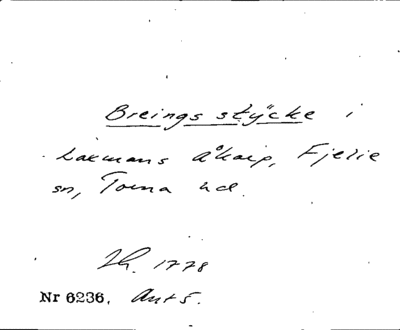 Breings stÿcke i
Laxmans Åkarp, Fjelie
sn, Torna hd.
Lh. 1778
Nr 6236. Akt 5.